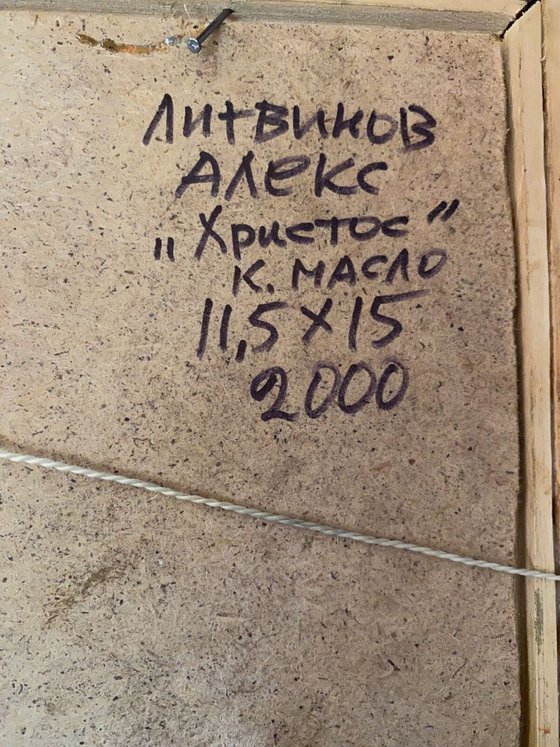 Литвинов
Алекс
„Христос”
к. масло
11,5 х 15
2000